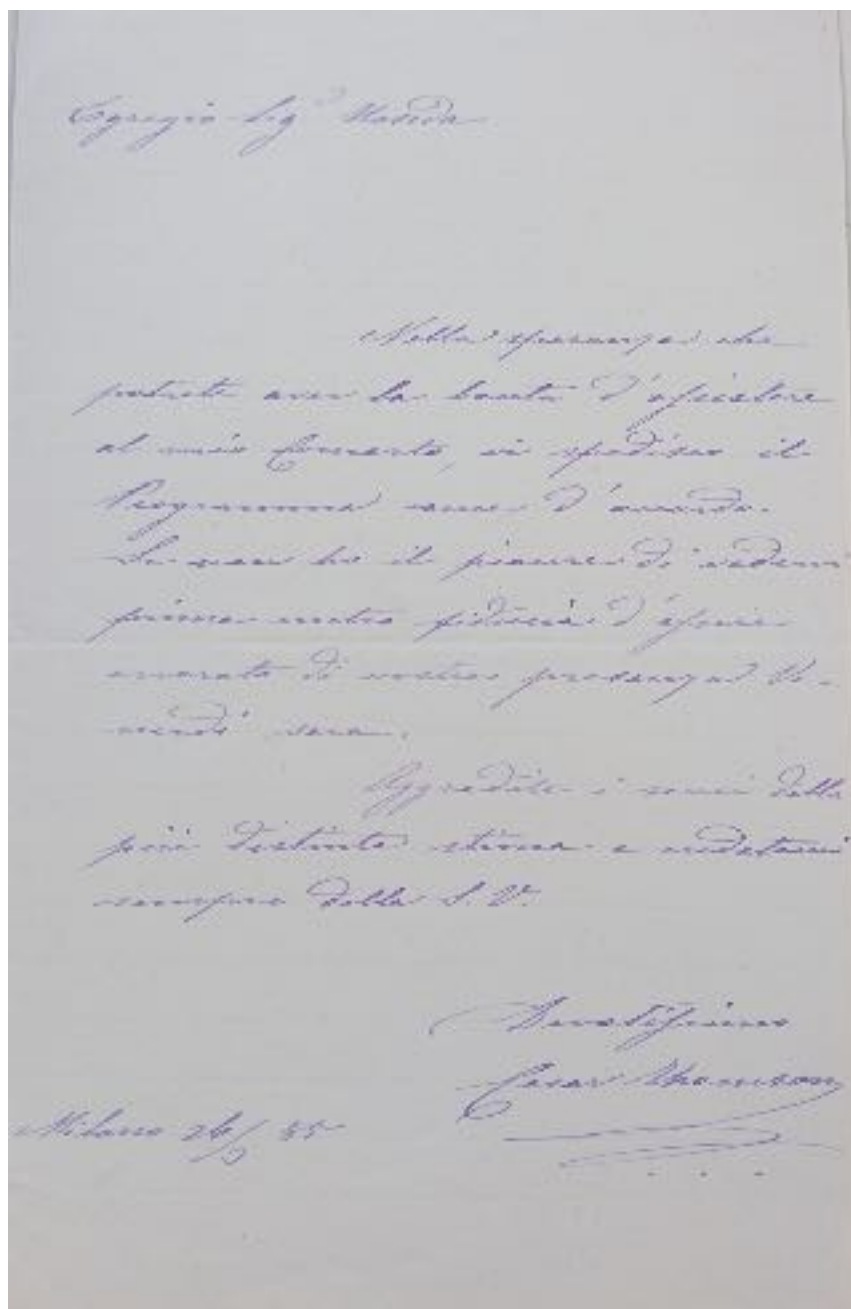 Egregio Sig.r
Nella speranza che
potrete aver la bontà d'assistere
al mio Concerto, vi spedisco il
Programma
Se non ho il piacere di vedervi
prima nutro fiducia d'essere
onorato di vostra presenza Ve-
nerdì sera.
Aggradite i sensi della
più distinta stima e credetemi
sempre della S. V.
Devotissimo
Cesar Thomson
Milano 26/ 85